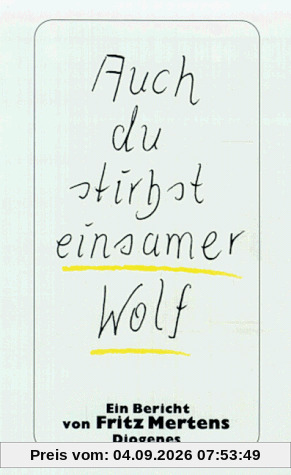 Auch
du
stirbst
einsamer
Wolf
Ein Bericht
von Fritz Mertens
Diogenes
Preis vom: 04.09.2026 07:53:49